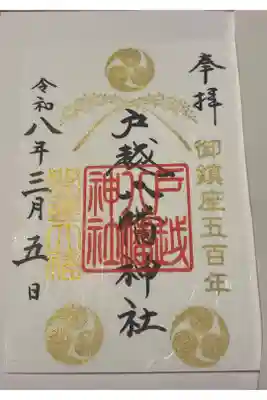 奉拝
御鎮座五百年
戸越八幡神社
戸越
八幡
神社
令和八年三月五日